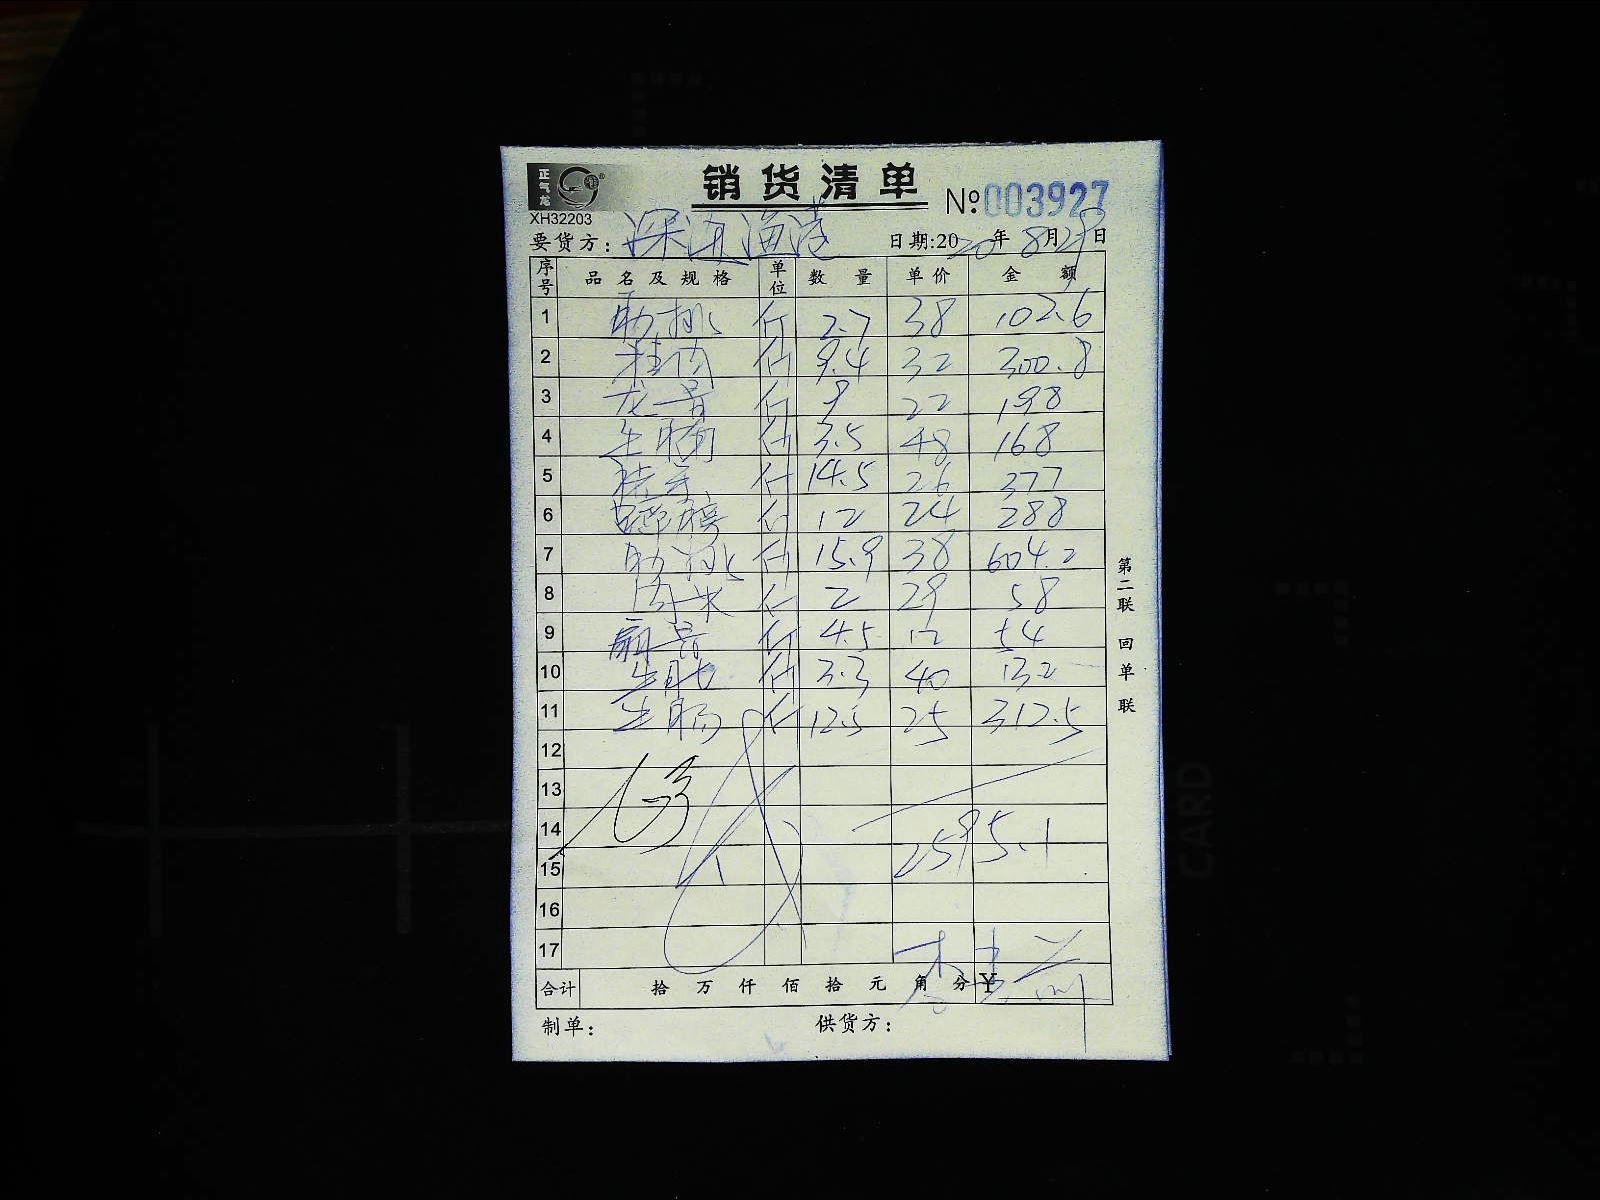 正气龙
销货清单
XH32203
№003927
要货方: 深 海港
日期:2020年8月29日
序号 品名及规格 单位 数量 单价 金额
1 肋排 斤 2.7 38 102.6
2 斤 9.4 32 300.8
3 龙骨 斤 9 22 198
4 斤 3.5 48 168
5 斤 14.5 26 377
6 斤 12 24 288
7 肋排 斤 15.9 38 604.2
8 肉 斤 2 29 58
9 扇骨 斤 4.5 12 54
10 生肚 斤 3.3 40 132
11 生肠 斤 12.5 25 312.5
12
13
14
15 2595.1
16
17
合计 拾 万 仟 佰 拾 元 角 分 ¥
制单: 供货方:
第二联 回单联